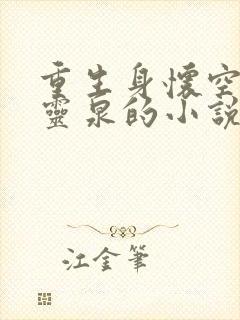 重生身懷空
靈泉的小說
江金筆